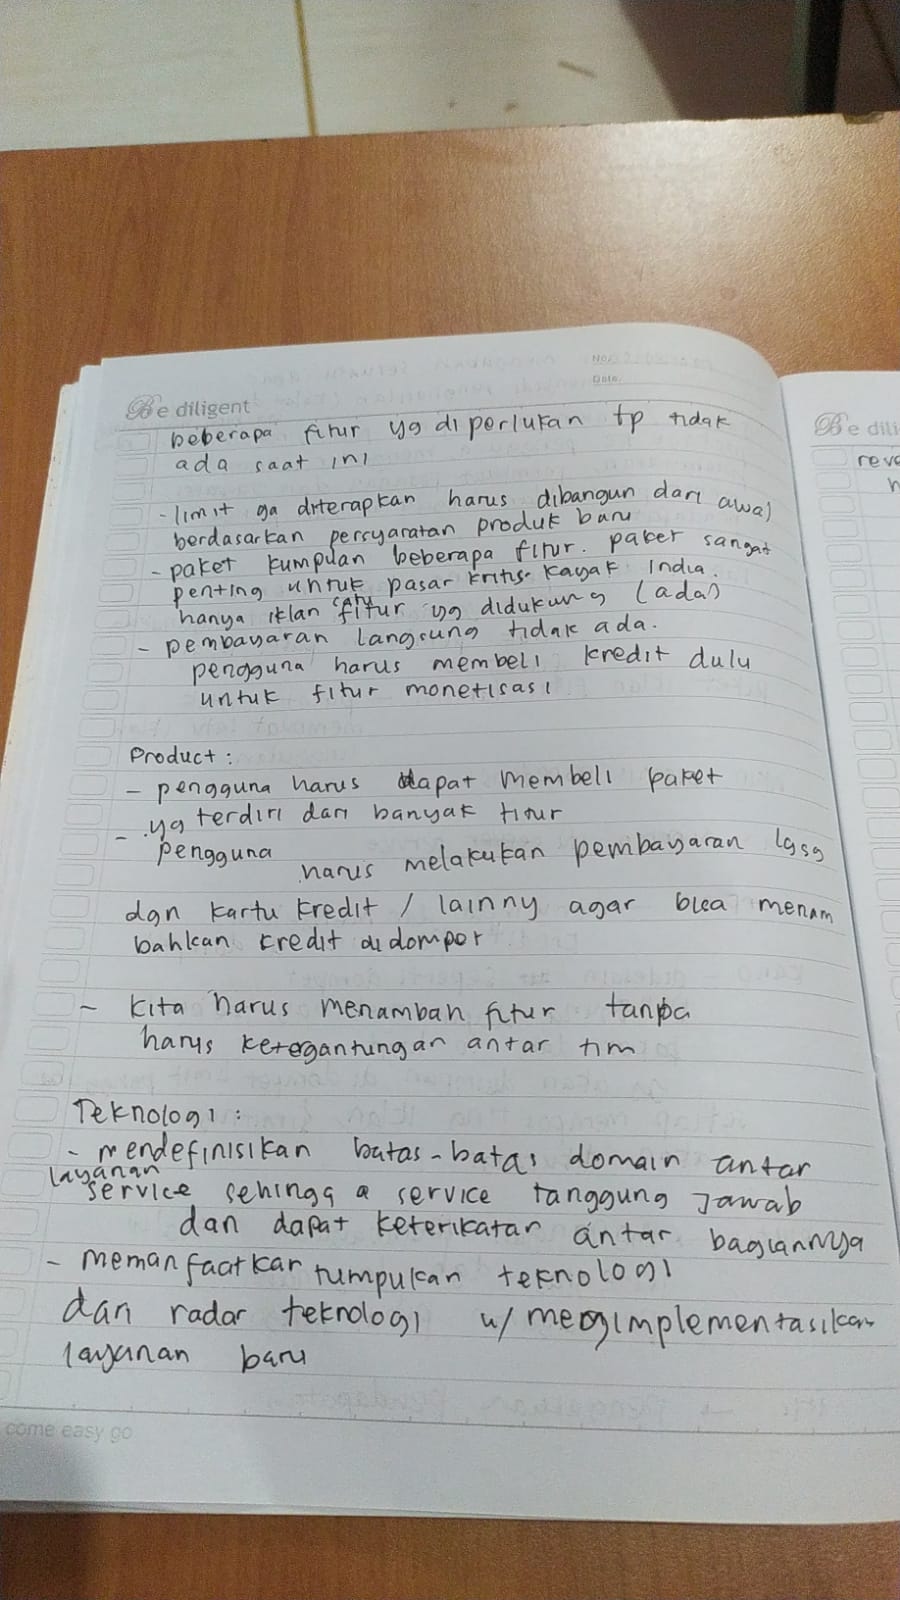 No.
Date.
Be diligent
beberapa fitur yg diperlukan tp tidak
ada saat ini
- limit ga diterapkan harus dibangun dari awal
berdasarkan persyaratan produk baru
- paket kumpulan beberapa fitur. paket sangat
penting untuk pasar kritis kayak India.
hanya iklan satu fitur yg didukung (ada)
- pembayaran langsung tidak ada.
pengguna harus membeli kredit dulu
untuk fitur monetisasi
Product :
- pengguna harus dapat membeli paket
yg terdiri dari banyak fitur
- pengguna harus melakukan pembayaran lgsg
dgn kartu kredit / lainny agar bisa menam
bahkan kredit di dompet
- Kita harus menambah fitur tanpa
harus ketergantungan antar tim
Teknologi :
- mendefinisikan batas-batas domain antar
layanan
service sehingga a service tanggung jawab
dan dapat keterikatan antar bagiannya
- memanfaatkan tumpukan teknologi
dan radar teknologi u/ mengimplementasikan
layanan baru
come easy go
Be dili
reve